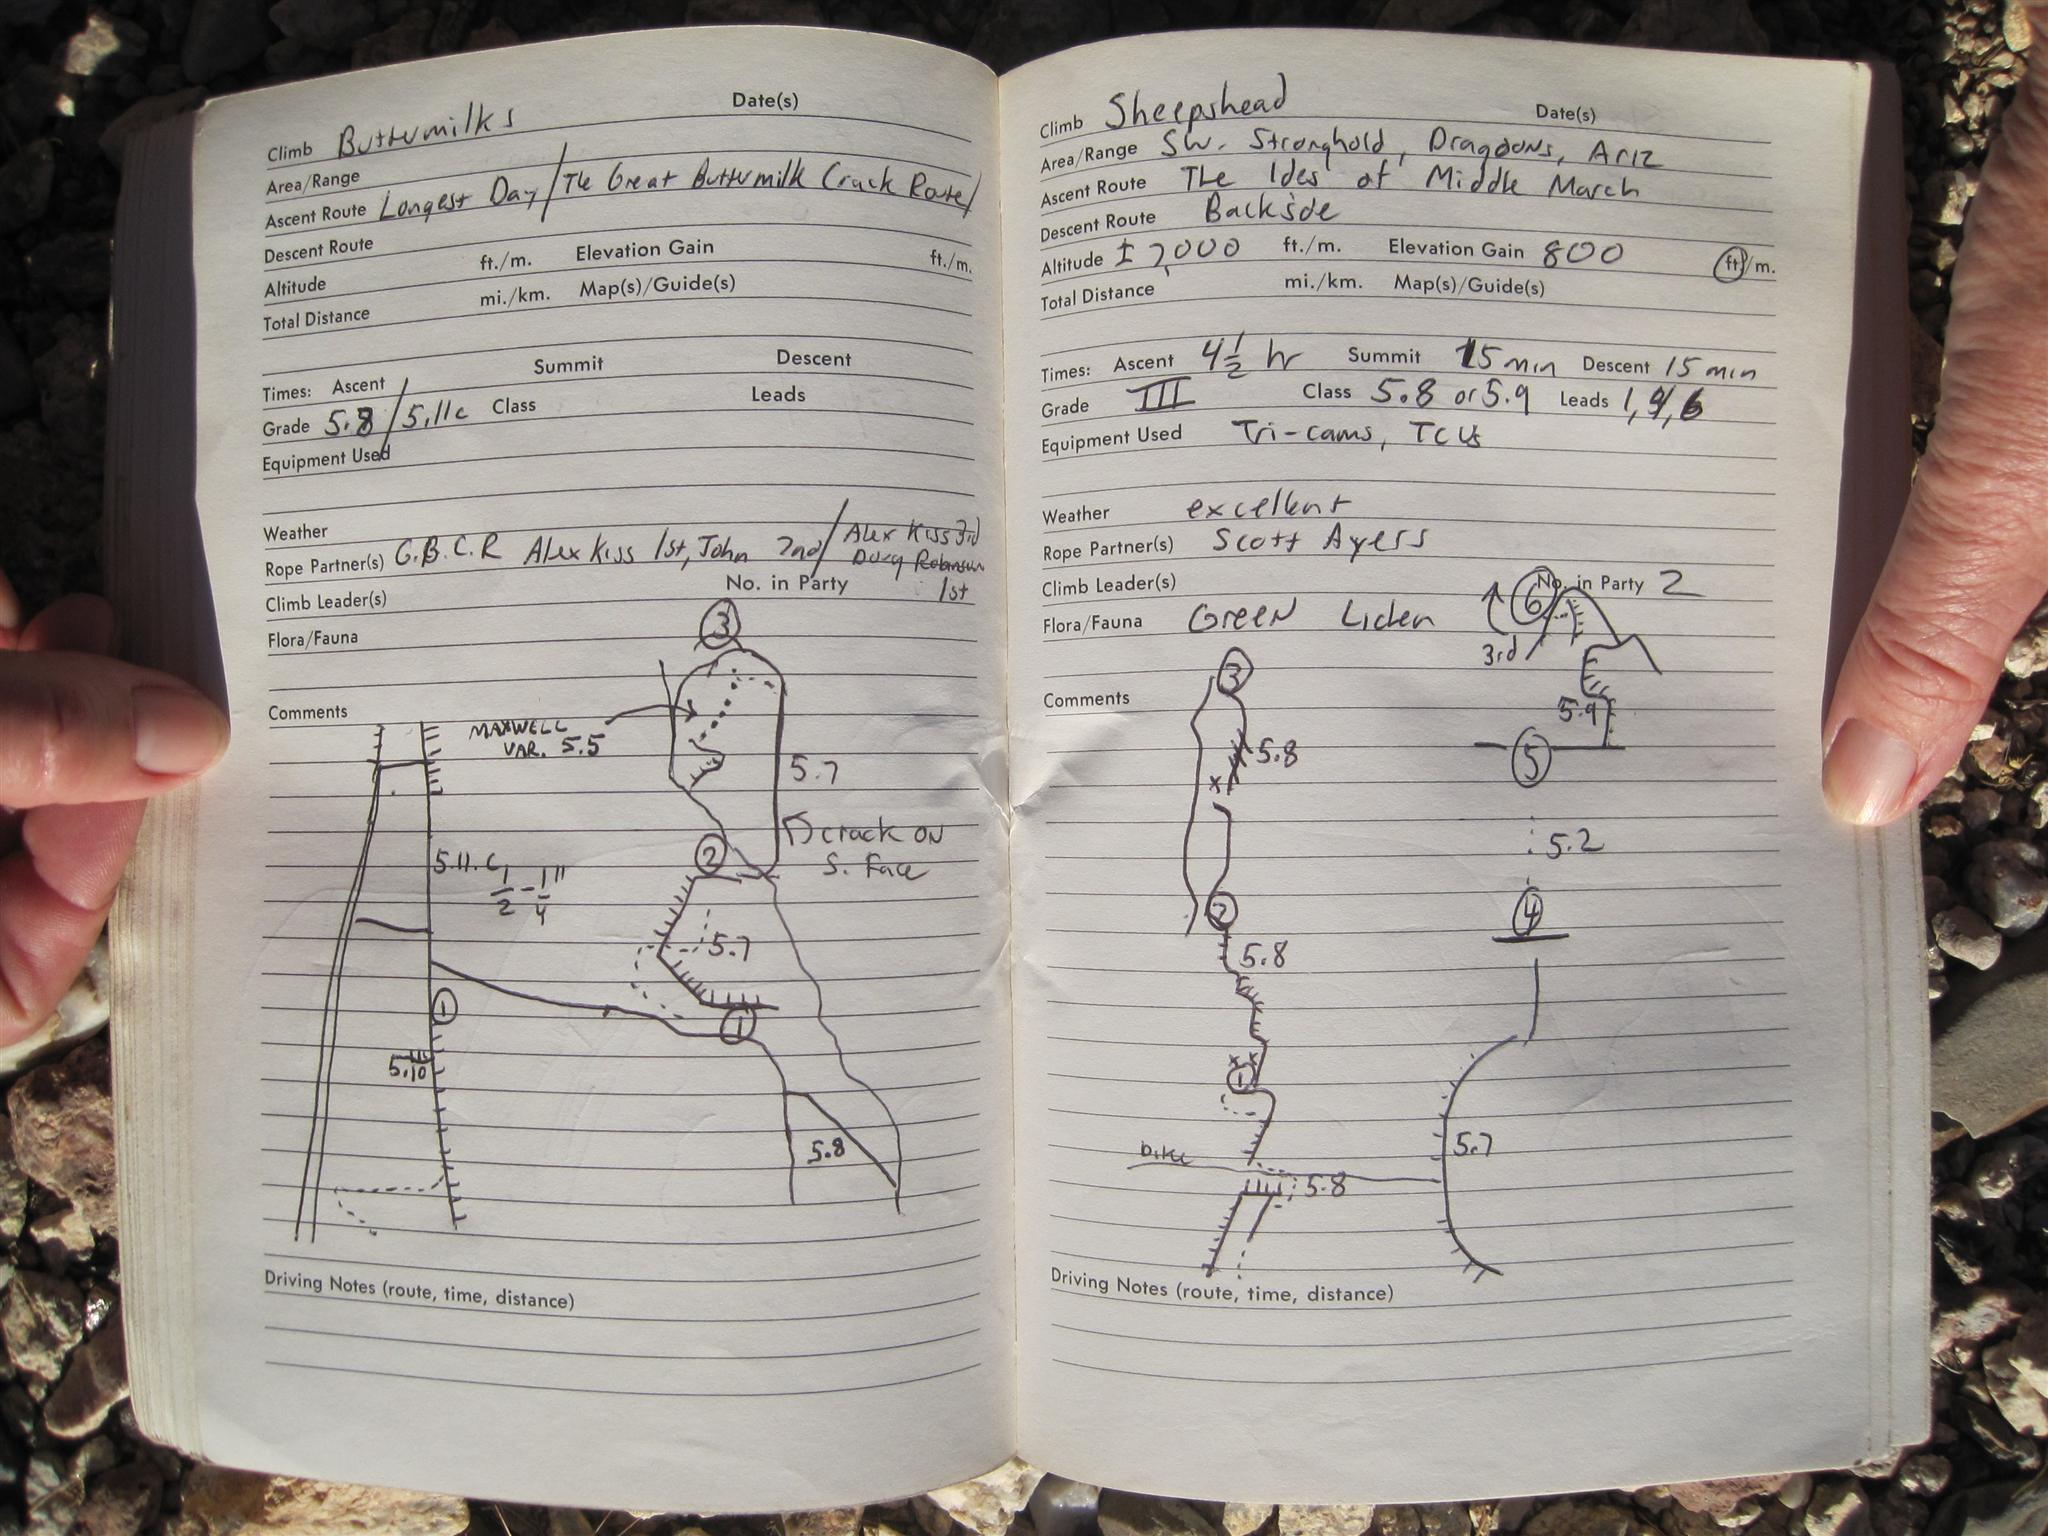 Date(s)
Climb Buttermilks
Area/Range
Ascent Route Longest Day/The Great Buttermilk Crack Route/
Descent Route
Altitude ft./m. Elevation Gain ft./m.
Total Distance mi./km. Map(s)/Guide(s)
Times: Ascent Summit Descent
Grade 5.8/5.11c Class Leads
Equipment Used
Weather
Rope Partner(s) G.B.C.R Alex Kiss 1st, John 2nd/Alex Kiss 3rd
Doug Robinson
1st
Climb Leader(s) No. in Party
Flora/Fauna
Comments
3
MAXWELL
VAR. 5.5
5.7
crack on
S. Face
2
5.11.c
1/2-1/4"
5.7
1
1
5.10
5.8
Driving Notes (route, time, distance)
Date(s)
Climb Sheepshead
Area/Range SW. Stronghold, Dragoons, Ariz
Ascent Route The Ides of Middle March
Descent Route Backside
Altitude ± 7,000 ft./m. Elevation Gain 800 ft/m.
Total Distance mi./km. Map(s)/Guide(s)
Times: Ascent 4 1/2 hr Summit 15 min Descent 15 min
Grade III Class 5.8 or 5.9 Leads 1, 4, 6
Equipment Used Tri-cams, TCUs
Weather excellent
Rope Partner(s) Scott Ayers
Climb Leader(s) No. in Party 2
Flora/Fauna Green Lichen
6
3rd
Comments
3
5.9
5.8
5
5.2
2
4
5.8
1
5.7
Dike
5.8
Driving Notes (route, time, distance)